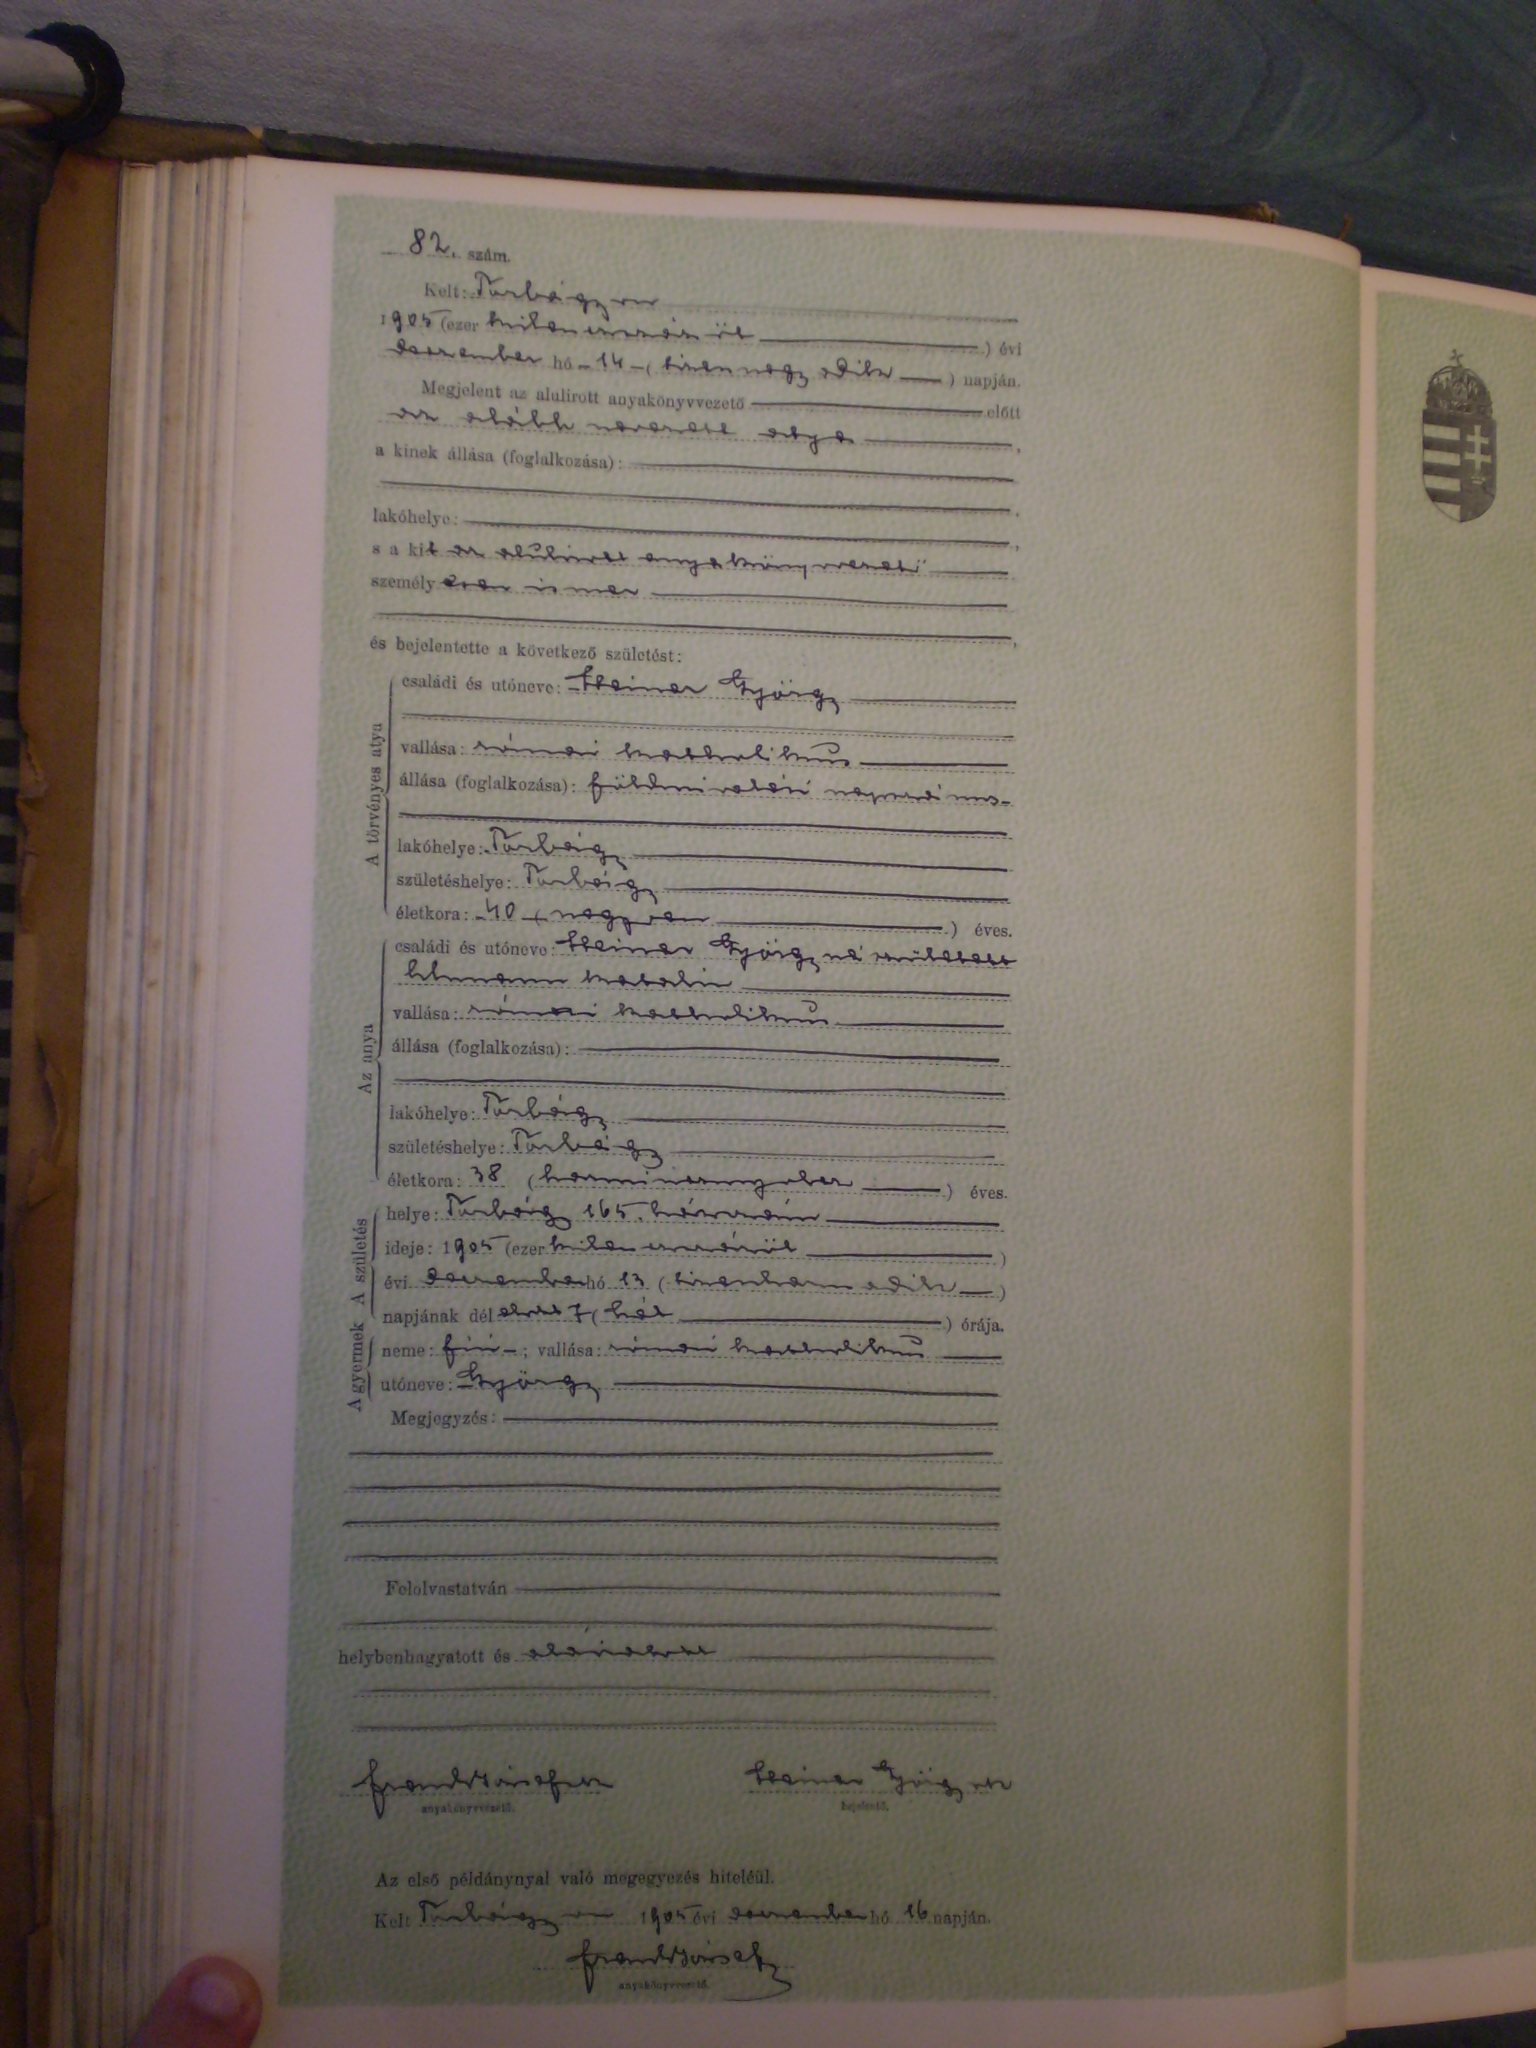 82. szám.
Kelt: Torbágyon
1905 (ezer kilenczszáz öt ) évi
deczember hó - 14 - ( tizen negy edik ) napján.
Megjelent az alulirott anyakönyvvezető előtt
az alább nevezett atya ,
a kinek állása (foglalkozása):
lakóhelye: ,
s a kit az alulirott anyakönyvvezető
személyesen ismer
,
és bejelentette a következő születést:
A törvényes atya
családi és utóneve: Steiner György
vallása: római katholikus
állása (foglalkozása): földmivelési napszámos-
lakóhelye: Torbágy
születéshelye: Torbágy
életkora: - 40 - ( negyven ) éves.
Az anya
családi és utóneve: Steiner Györgyné született
Katalin
vallása: római katholikus
állása (foglalkozása):
lakóhelye: Torbágy
születéshelye: Torbágy
életkora: 38 ( harmincznyolcz ) éves.
A születés
helye: Torbágy 165. házszám
ideje: 1905 (ezer kilenczszázöt )
évi deczember hó 13 ( tizenharm adik )
napjának dél előtt 7 ( hét ) órája.
A gyermek
neme: fiú - ; vallása: római katholikus
utóneve: György
Megjegyzés:
Felolvastatván
helybenhagyatott és aláiratott
József
Steiner György
anyakönyvvezető. bejelentő.
Az első példánynyal való megegyezés hiteléül.
Kelt Torbágyon 1905 évi deczember hó 16 napján.
József
anyakönyvvezető.